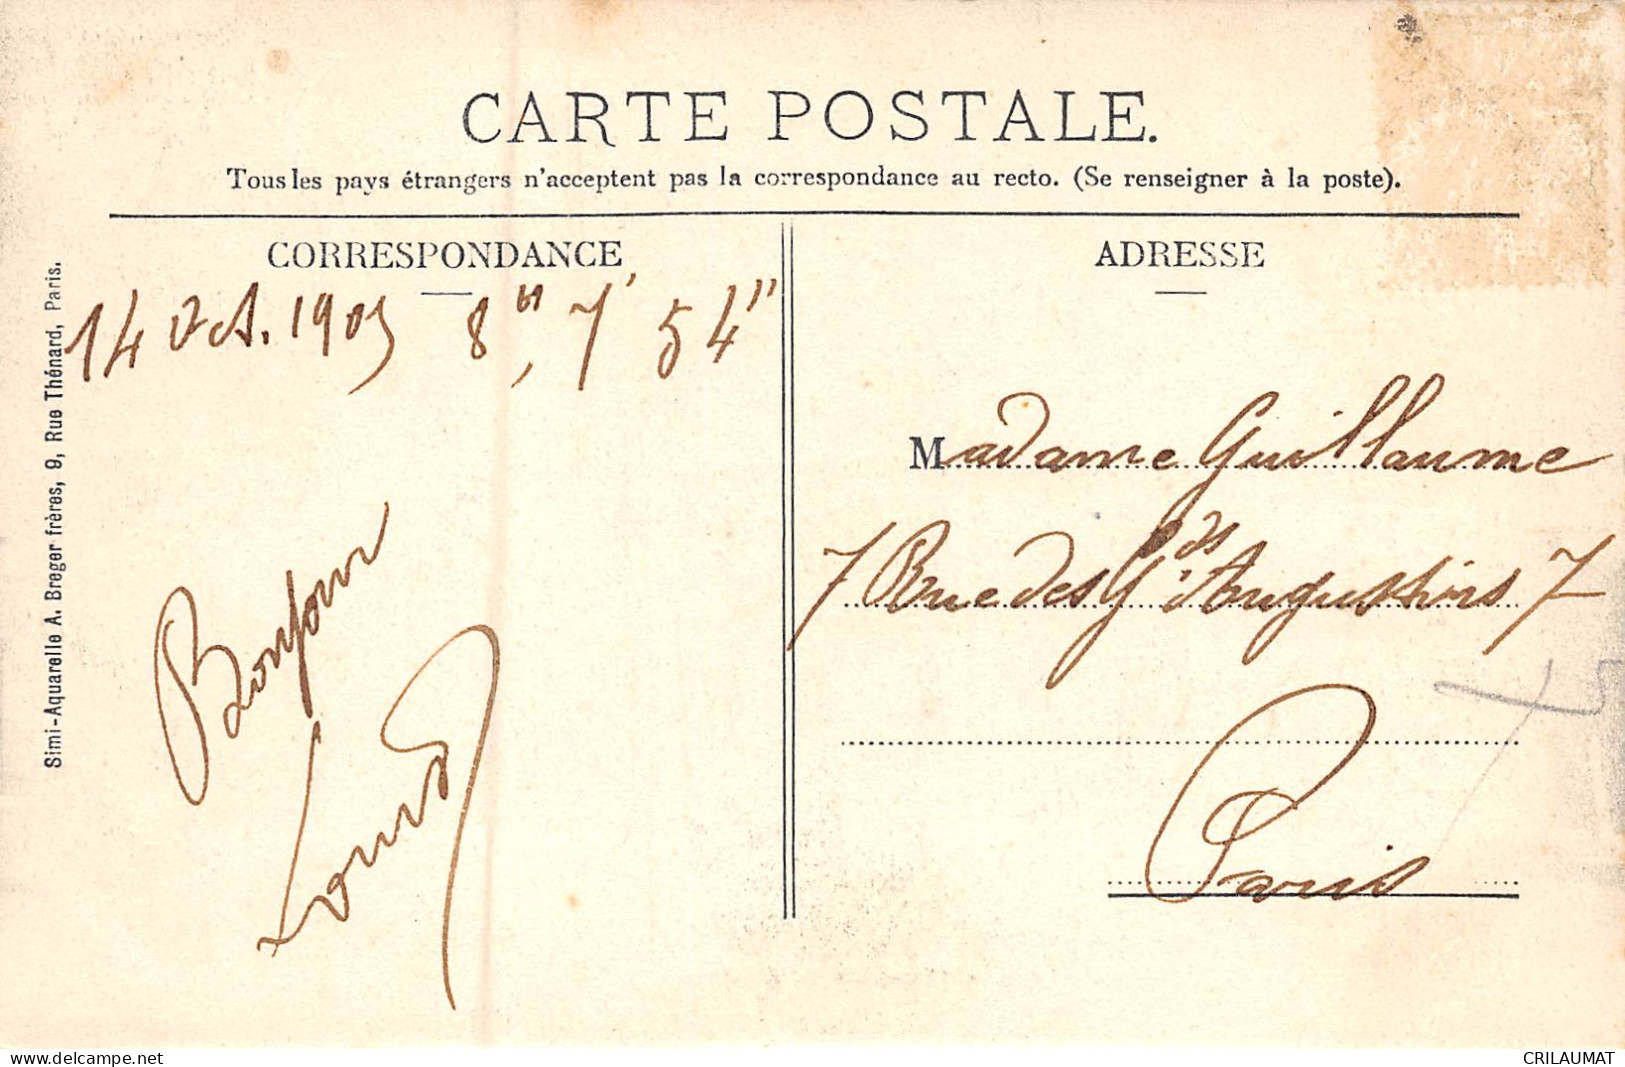 CARTE POSTALE.
Tous les pays étrangers n'acceptent pas la correspondance au recto. (Se renseigner à la poste).
CORRESPONDANCE
14 Oct. 1905 8h, 7' 54"
Bonjour
Louis
ADRESSE
Madame Guillaume
7 Rue des Gds Augustins 7
Paris
Simi-Aquarelle A. Breger frères, 9, Rue Thénard, Paris.
delcampe.net
CRILAUMAT